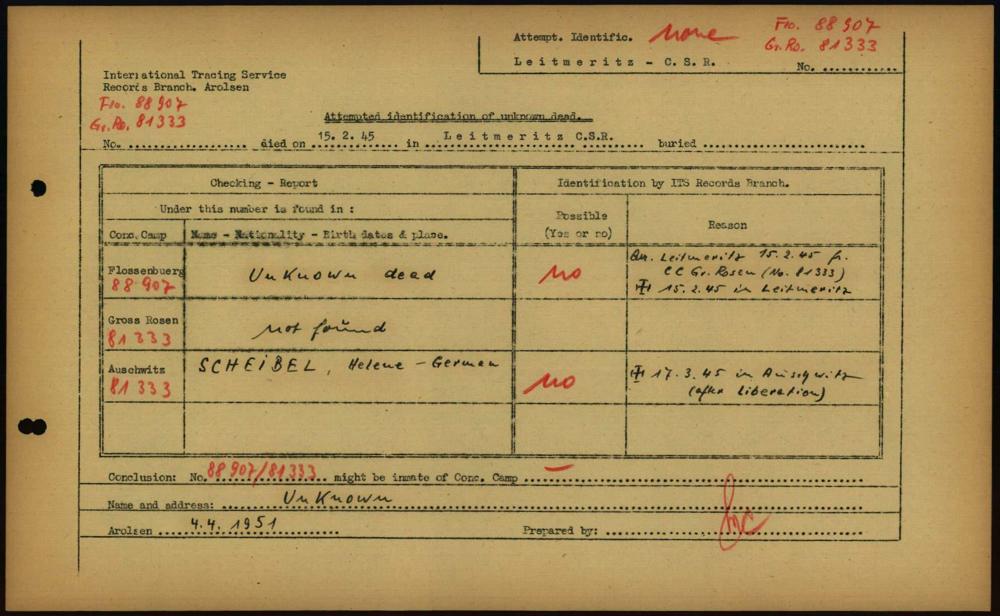 Attempt. Identific. none
Flo. 88 907
Gr. Ro. 81333
Leitmeritz - C. S. R.
No. ............
International Tracing Service
Records Branch. Arolsen
Flo. 88 907
Gr. Ro. 81333
Attempted identification of unknown dead.
No. .................. died on 15. 2. 45 in Leitmeritz C.S.R. buried ..................
Checking - Report
Identification by ITS Records Branch.
Under this number is found in :
Possible
(Yes or no)
Reason
Conc. Camp
Name - Nationality - Birth dates & place.
Flossenbuerg
88 907
Unknown dead
no
Arr. Leitmeritz 15.2.45 fr.
CC Gr. Rosen (No. 81333)
15.2.45 in Leitmeritz
Gross Rosen
81 333
not found
Auschwitz
81 333
SCHEIBEL, Helene - German
no
17.3.45 in Auschwitz
(after liberation)
Conclusion: No. 88 907/81333 might be inmate of Conc. Camp —
Name and address: Unknown
Arolsen 4.4. 1951
Prepared by: